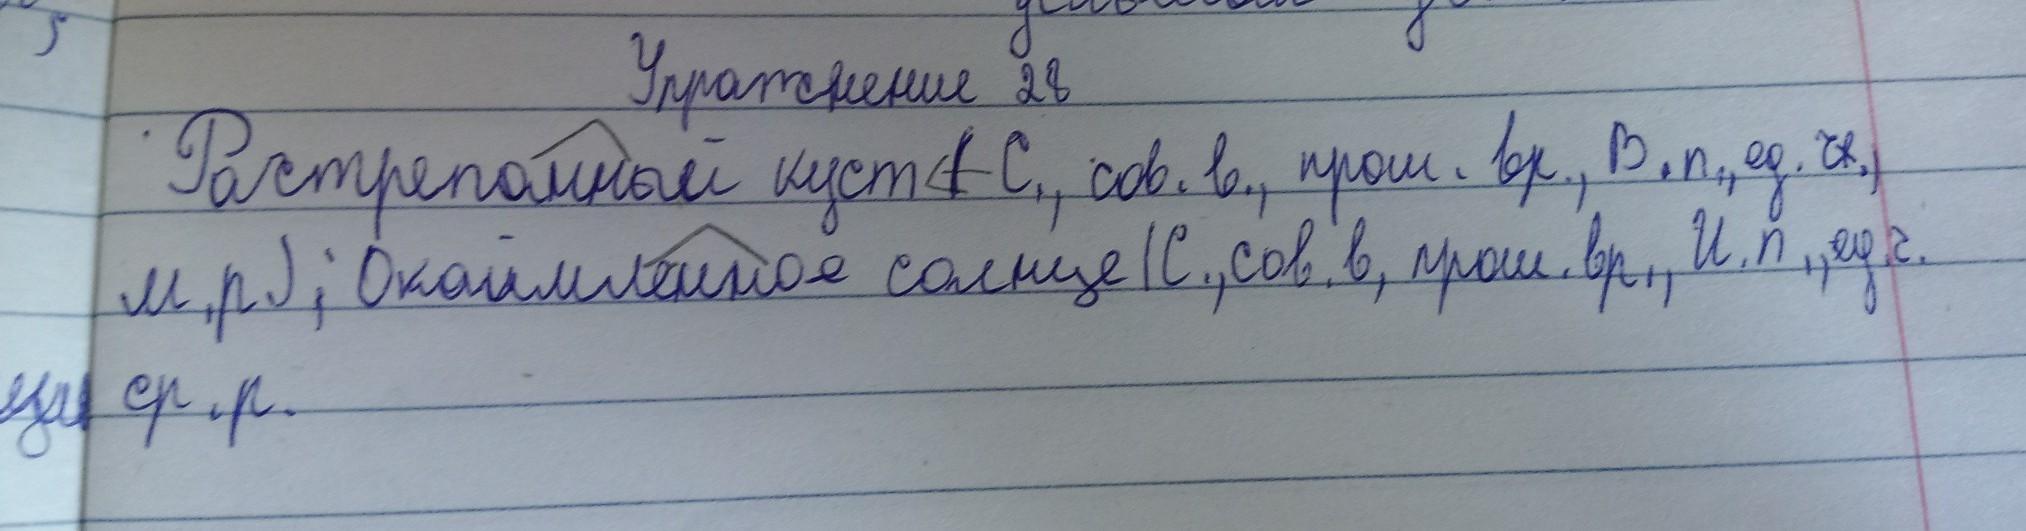 Упражнение 28
Растрепанный куст (С., сов. в., прош. вр., В. п., ед. ч.,
м. р.); Окаймленное солнце (С., сов. в, прош. вр., И. п., ед. ч.
ср. р.